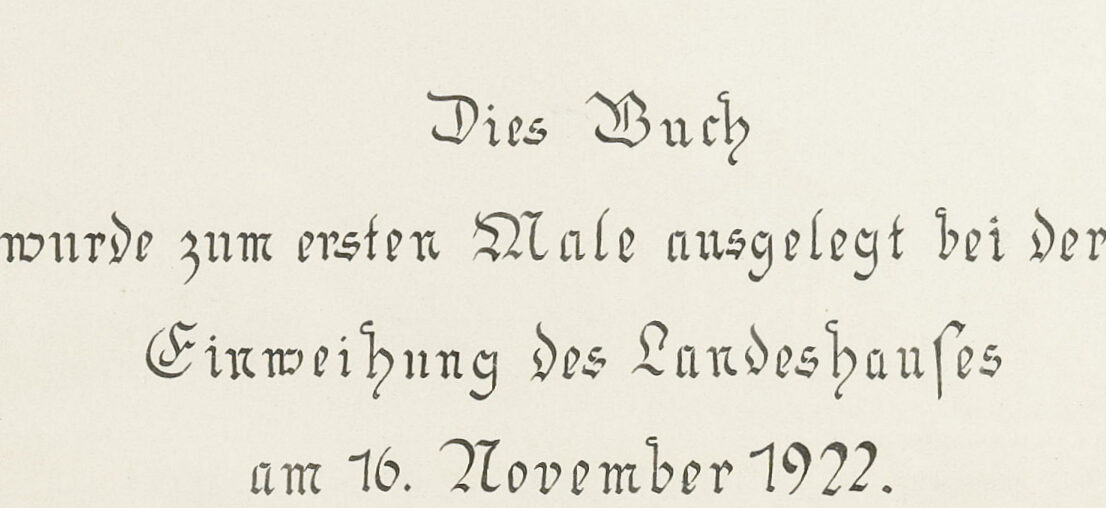 Dies Buch
wurde zum ersten Male ausgelegt bei der
Einweihung des Landeshauſes
am 16. November 1922.